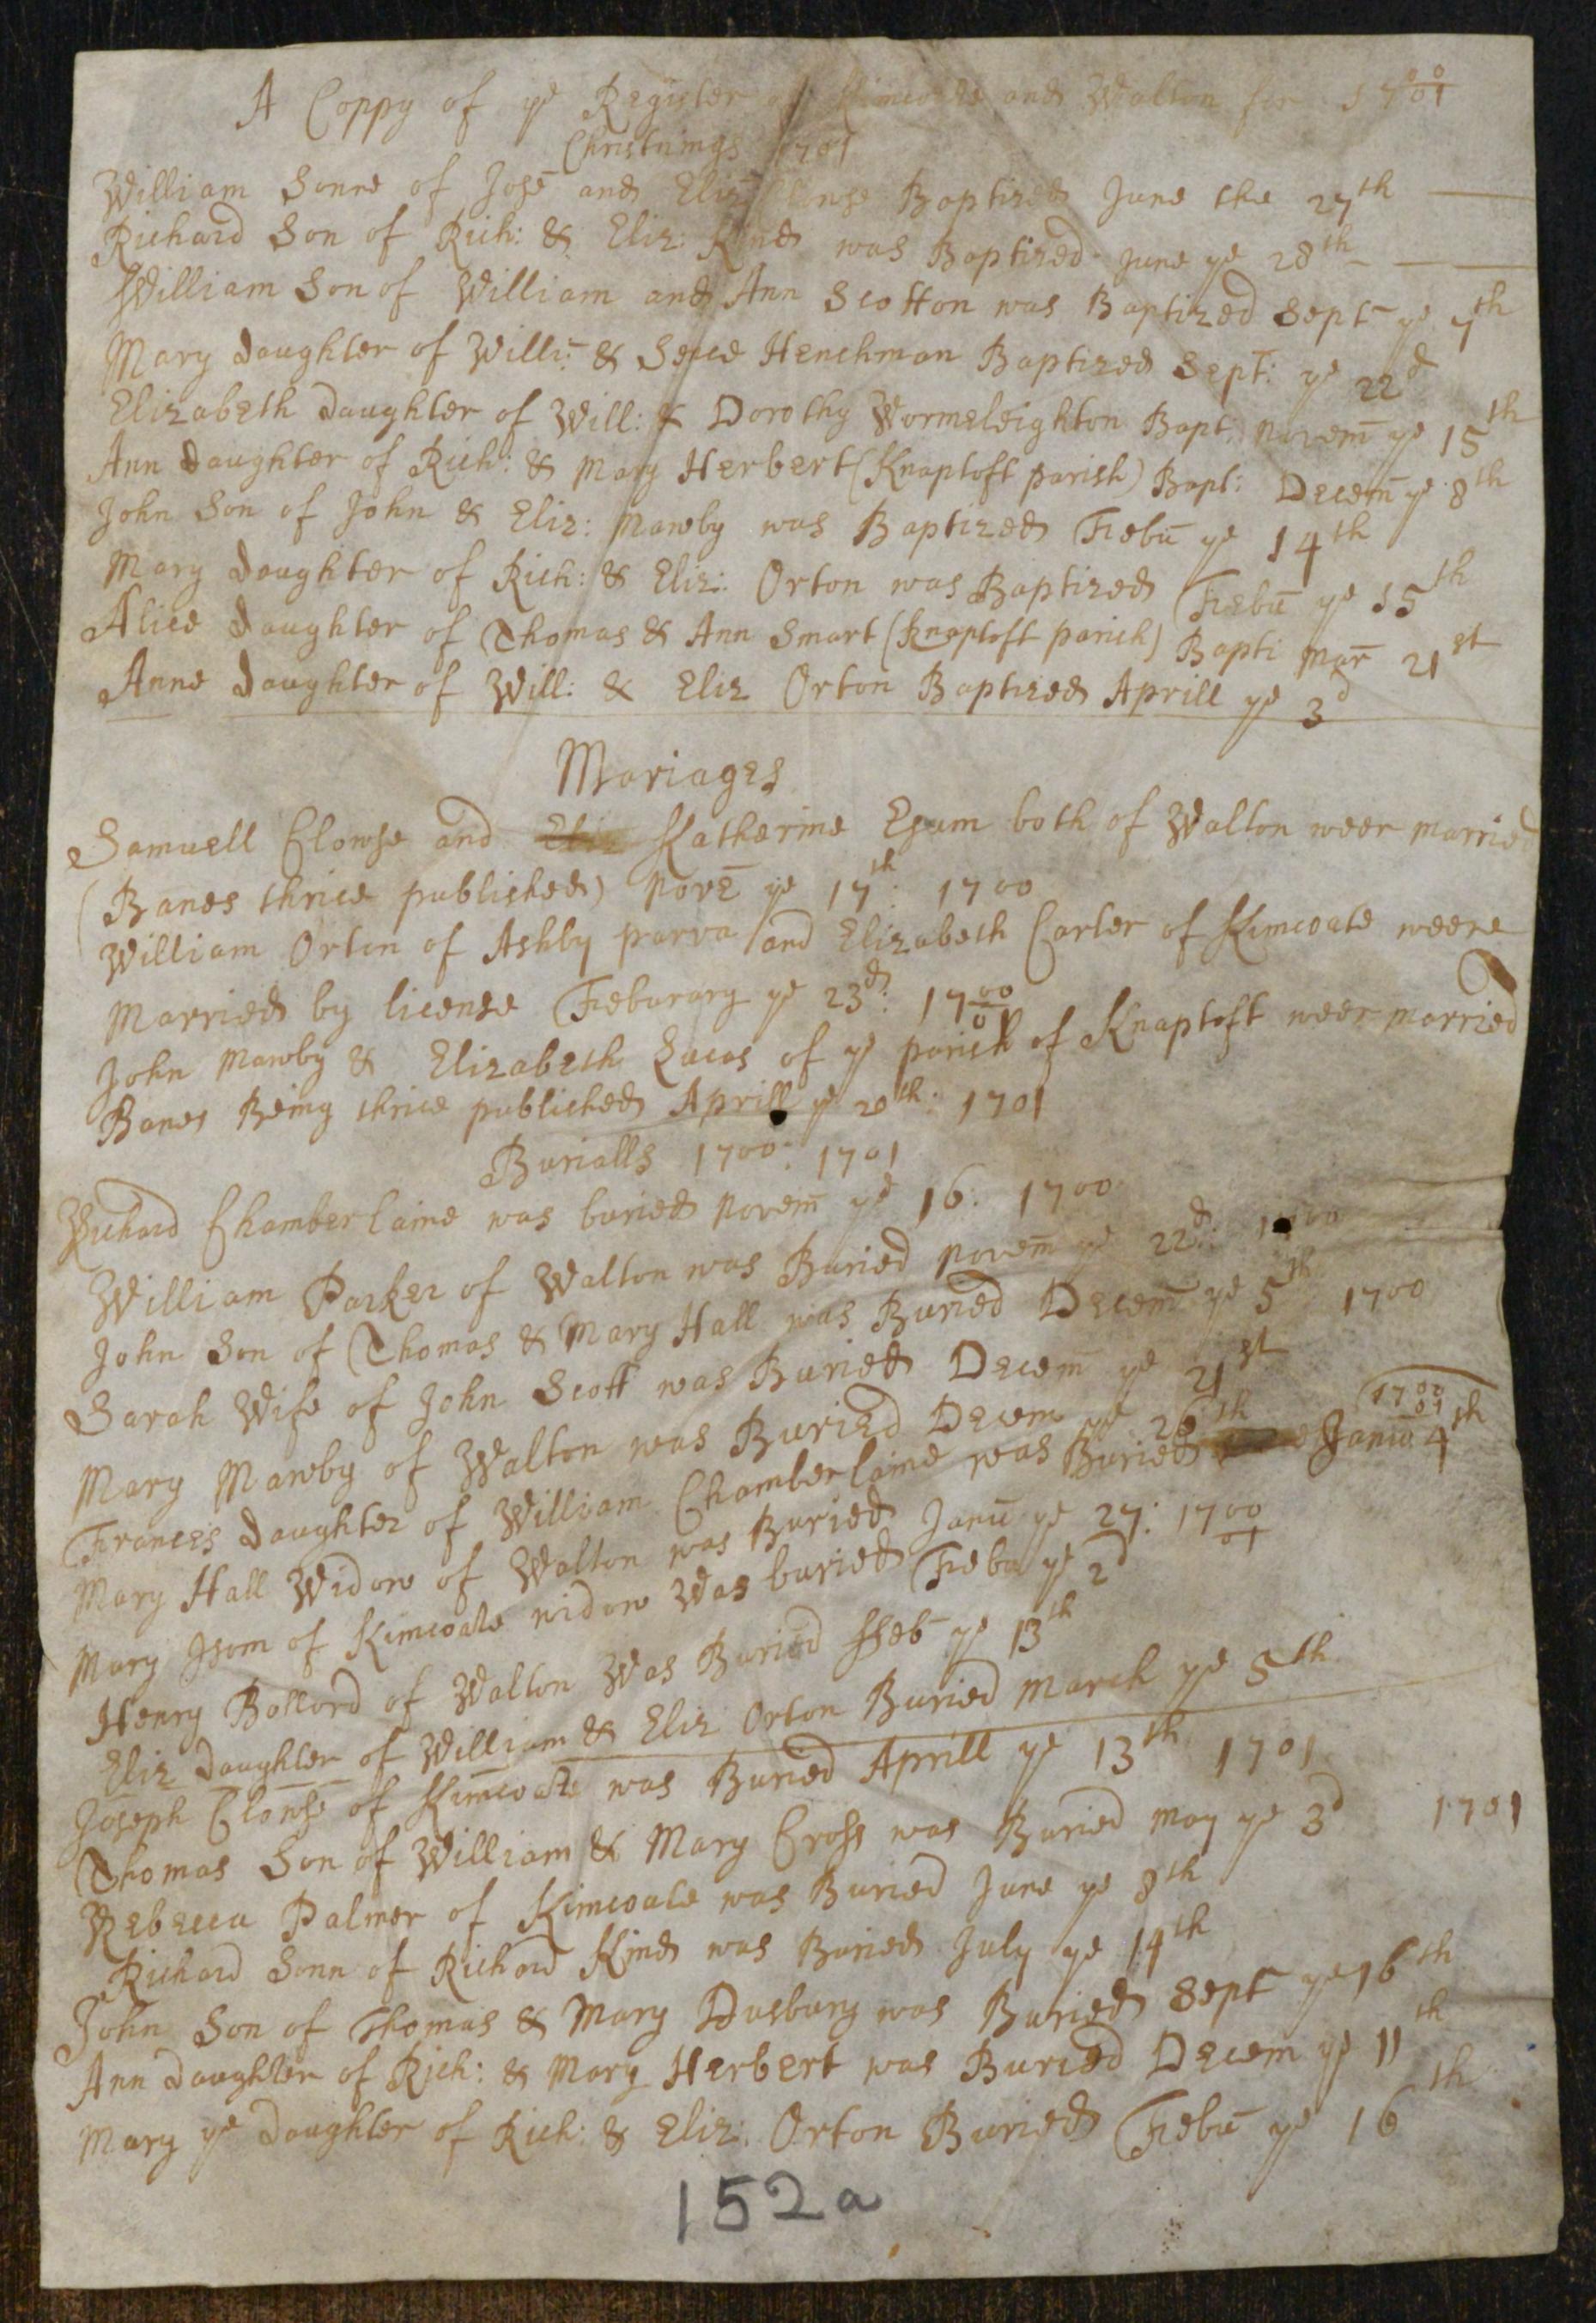 A Coppy of ye Register of Kimcoate and Walton for 1700/01
Christnings 1701
William Sonne of Jose and Eliz Clowse Baptized June the 27th
Richard Son of Rich: & Eliz: Kind was Baptized June ye 28th
William Son of William and Ann Scotton was Baptized Sept ye 7th
Mary daughter of Willi: & Henchman Baptized Sept: ye 22d
Elizabeth daughter of Will: & Dorothy Wormeleighton Bapt: Novem ye 15th
Ann daughter of Rich: & Mary Herbert (Knaptoft parish) Bapt: Decem ye 8th
John Son of John & Eliz: Mawby was Baptized Febu ye 14th
Mary daughter of Rich: & Eliz: Orton was Baptized Febu ye 15th
Alice daughter of Thomas & Ann Smart (Knaptoft parich) Bapti Mar 21st
Anne daughter of Will: & Eliz Orton Baptized Aprill ye 3d
Mariages
Samuell Clowse and Eliz Katherine Esum both of Walton weer married
(Banes thrice published) Nove ye 17th: 1700
William Orton of Ashby parva and Elizabeth Carter of Kimcoate weere
Married by license Feburary ye 23d: 1700/01
John Mawby & Elizabeth Lucas of ye parich of Knaptoft weer married
Banes Being thrice published Aprill ye 20th: 1701
Burialls 1700: 1701
Richard Chamberlaine was buried Novem ye 16: 1700
William Parker of Walton was Buried Novem ye 22d: 1700
John Son of Thomas & Mary Hall was Buried Decem ye 5th 1700
Sarah Wife of John Scott was Buried Decem ye 21st
Mary Mawby of Walton was Buried Decem ye 26th
Frances daughter of William Chamberlaine was Buried Janu 4th 1700/01
Mary Hall Widow of Walton was Buried Janu ye 27: 1700/01
Mary Isom of Kimcoate widow Was buried Febu ye 2d
Henry Bollord of Walton Was Buried ffeb ye 13th
Eliz daughter of William & Eliz Orton Buried March ye 5th
Joseph Clowse of Kimcoate was Buried Aprill ye 13th 1701
Thomas Son of William & Mary Cross was Buried May ye 3d 1701
Rebecca Palmer of Kimcoate was Buried June ye 8th
Richard Sonn of Richard Kind was Buried July ye 14th
John Son of Thomas & Mary Dusbury was Buried Sept ye 16th
Ann daughter of Rich: & Mary Herbert was Buried Decem ye 11th
Mary ye daughter of Rich: & Eliz: Orton Buried Febu ye 16th
152a